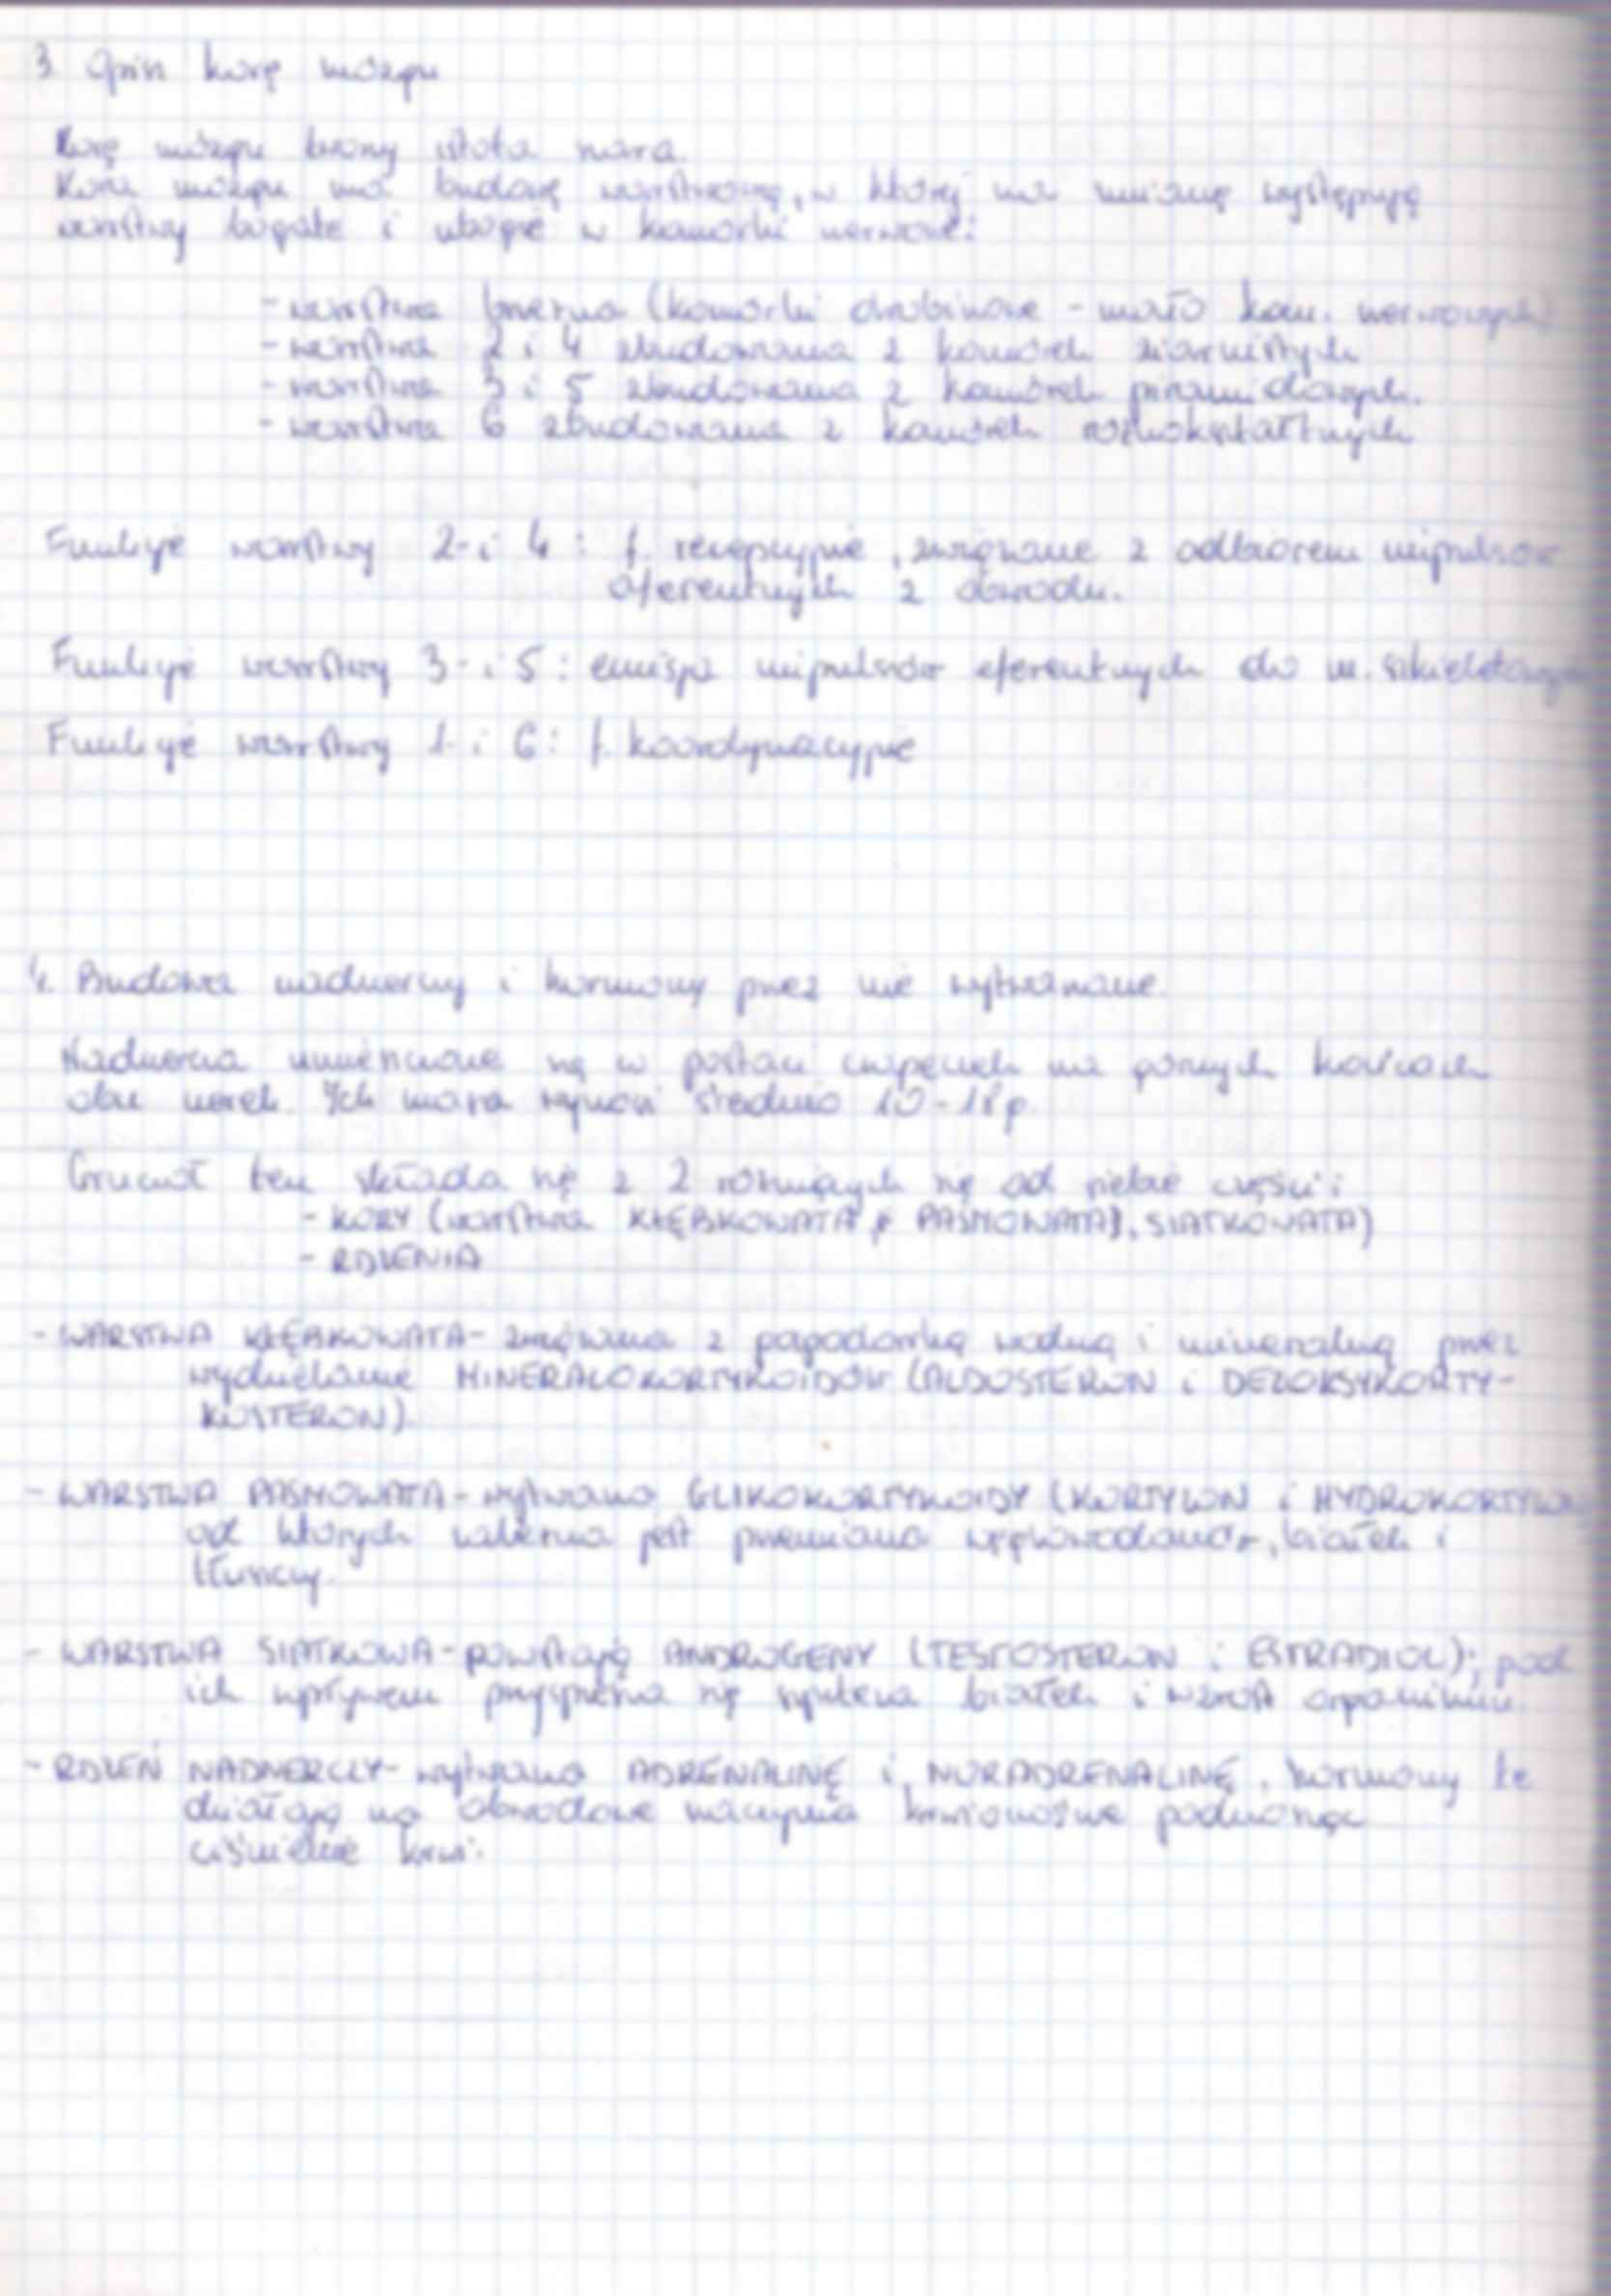 3. Opisz korę mózgu
Korę mózgu tworzy istota szara.
Kora mózgu ma budowę warstwową, w której na zmianę występują
warstwy bogate i ubogie w komórki nerwowe:
- warstwa brzeżna (komórki drobinowe - mało kom. nerwowych)
- warstwa 2 i 4 zbudowana z komórek ziarnistych
- warstwa 3 i 5 zbudowana z komórek piramidowych.
- warstwa 6 zbudowana z komórek różnokształtnych
Funkcje warstwy 2 i 4: f. recepcyjne, związane z odbiorem impulsów
aferentnych z obwodu.
Funkcje warstwy 3 i 5: emisja impulsów eferentnych do m. szkieletowych
Funkcje warstwy 1 i 6: f. koordynacyjne
4. Budowa nadnerczy i hormony przez nie wytwarzane.
Nadnercza umieszczone są w postaci czapeczek na górnych końcach
obu nerek. Ich masa wynosi średnio 10-18g.
Gruczoł ten składa się z 2 różniących się od siebie części:
- KORY (warstwa KŁĘBKOWATA, PASMOWATA, SIATKOWATA)
- RDZENIA
- WARSTWA KŁĘBKOWATA - związana z gospodarką wodną i mineralną przez
wydzielanie MINERALOKORTYKOIDÓW (ALDOSTERON i DEZOKSYKORTY-
KOSTERON).
- WARSTWA PASMOWATA - wytwarza GLIKOKORTYKOIDY (KORTYZON i HYDROKORTYZON)
od których zależna jest przemiana węglowodanów, białek i
tłuszczy.
- WARSTWA SIATKOWA - powstają ANDROGENY (TESTOSTERON i ESTRADIOL); pod
ich wpływem przyspiesza się synteza białek i wzrost organizmu.
- RDZEŃ NADNERCZY - wytwarza ADRENALINĘ i NORADRENALINĘ, hormony te
działają na obwodowe naczynia krwionośne podnosząc
ciśnienie krwi.